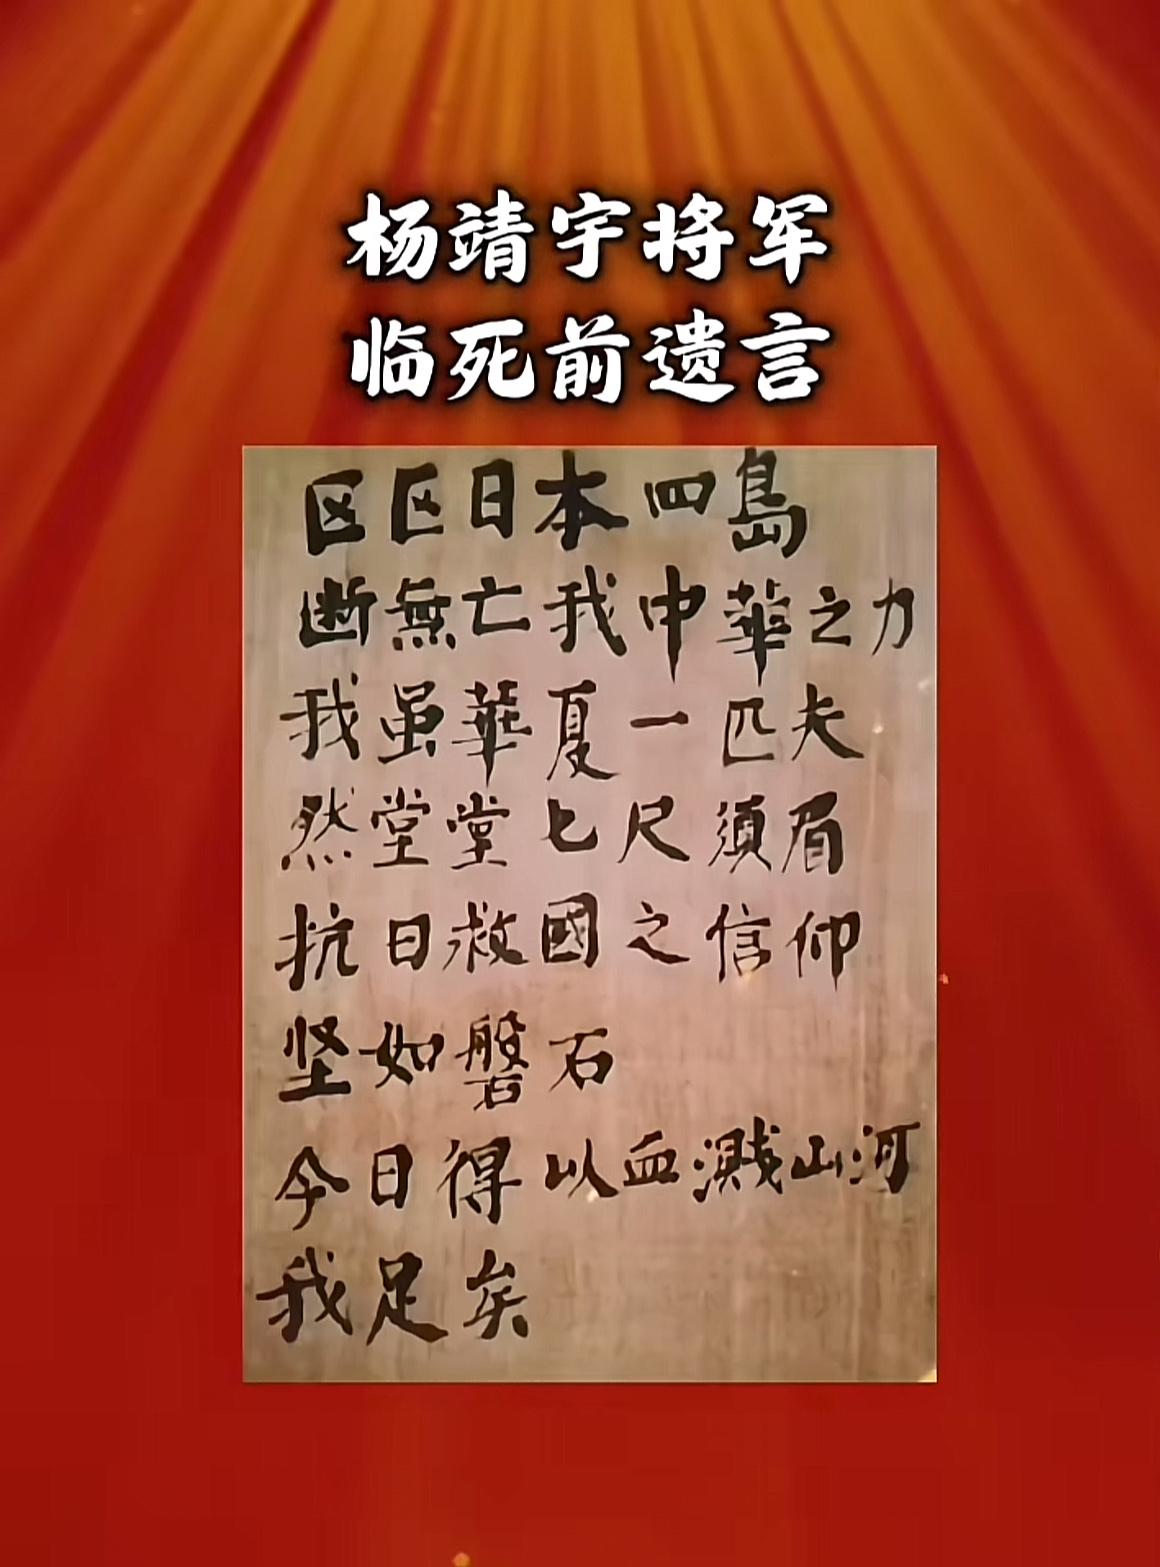 杨靖宇将军
临死前遗言
区区日本四島
断無亡我中華之力
我虽華夏一匹夫
然堂堂七尺須眉
抗日救國之信仰
坚如磐石
今日得以血濺山河
我足矣